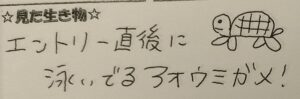 ☆見た生き物☆
エントリー直後に
泳いでるアオウミガメ!